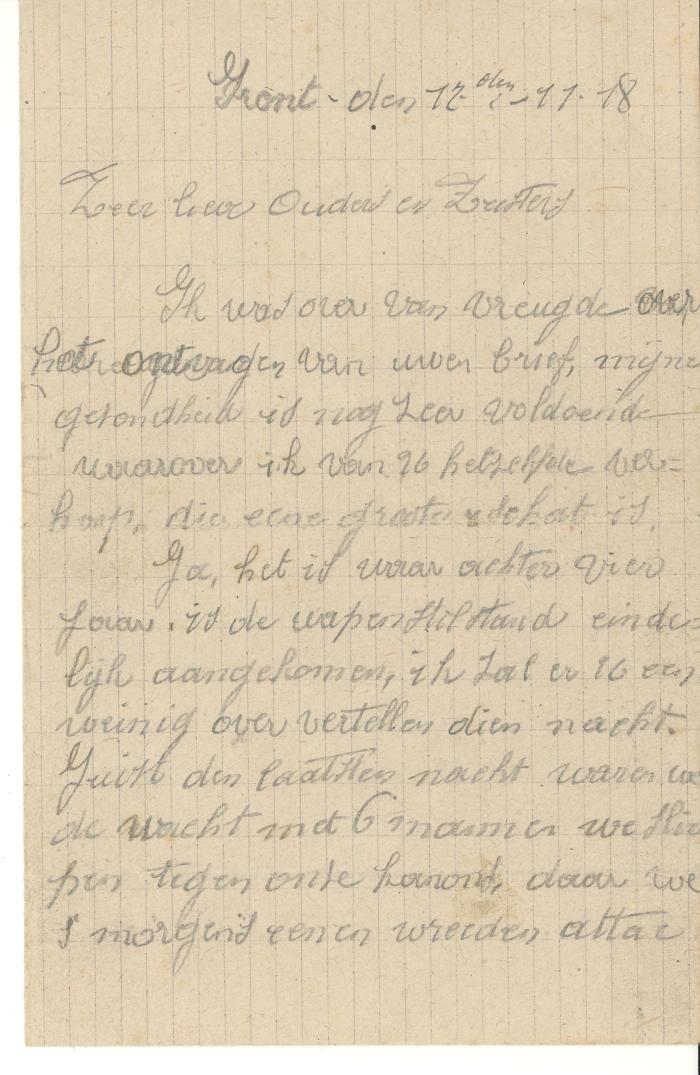 Front - den 12 den - 11 - 18
Zeer lieve Ouders en Zusters
Ik was over van vreugde over
het ontvagen van uwen brief, mijne
gezondheid is nog zeer voldoende
waarover ik van U hetzelfde ver=
hoop, die eene groote schat is.
Ja, het is waar achter vier
Jaar. is de wapenstilstand einde=
lijk aangekomen, ik zal er U een
weinig over vertellen dien nacht.
Juist den laatsten nacht waren we
de wacht met 6 mannen we slie
pen tegen onze kanons, daar we
s morgens eenen wreeden attac